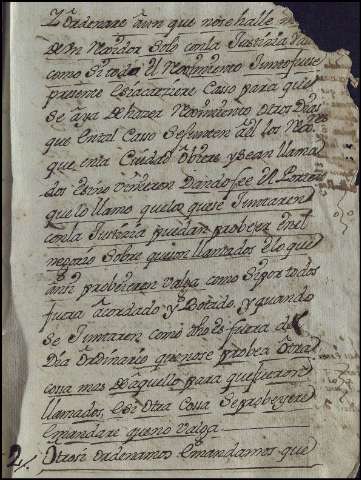 Y Ordenaro aun que no se halle
de Un Rexidor Solo con la Justicia
como Si todo El Reximiento Junto fuese
presente Esta carziere Caso para que
Se aya de hazer Reximiento, otros Dias
que en tal Caso Se Junten alli los
que en la Ciudad obiere, y sean llama
dos Como viniéron Dando fee El Portero
que lo llamo que los que se Juntaren
con la Justicia puedan probeher en el
negocio Sobre que son llamados, e lo que
ansi probeieren valga como Si por todos
fuera acordado y Dotado, y quando
Se Juntaren como dho es fuera de
Dia ordinario que no se probea otra
cosa mas de aquello para que fueron
llamados, e Si otra Cosa Se probeyere
e mandare que no valga
Otrosi ordenamos e mandamos que
2